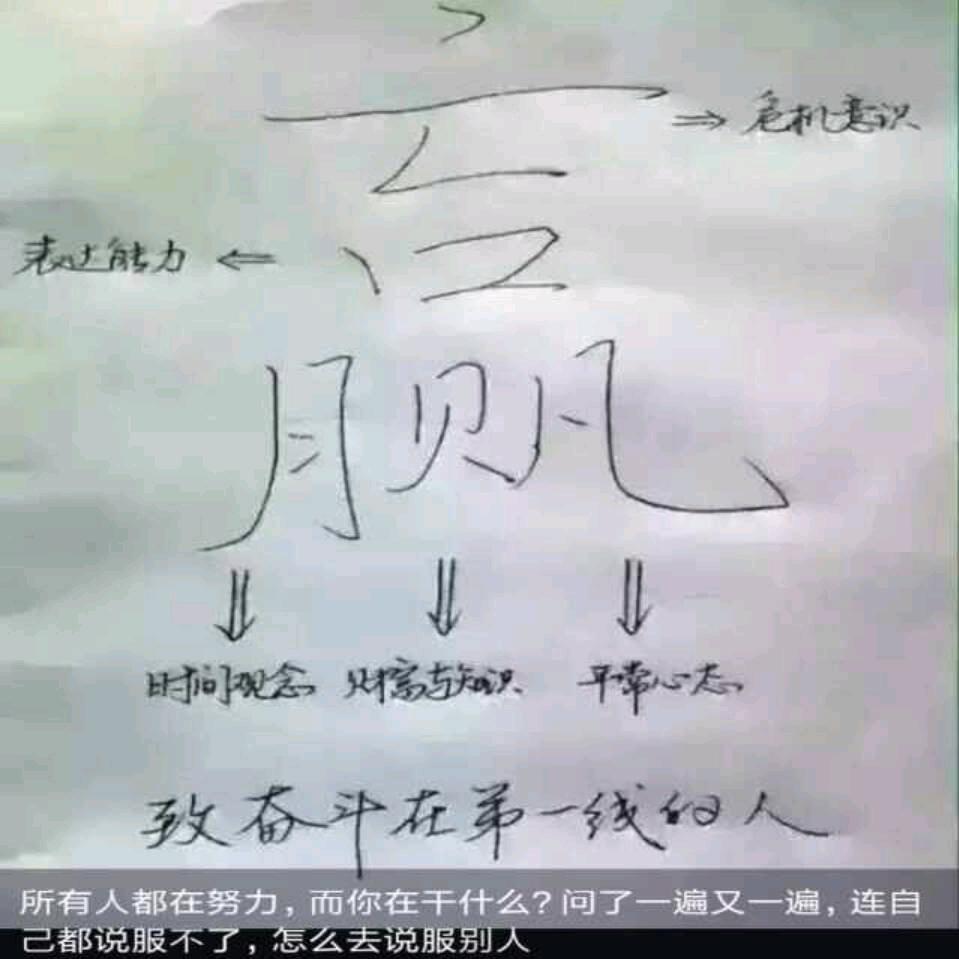 亡 ⇒ 危机意识
表达能力 ⇐ 口
月贝凡
⇓ ⇓ ⇓
时间观念 财富与知识 平常心态
致奋斗在第一线的人
所有人都在努力，而你在干什么？问了一遍又一遍，连自
己都说服不了，怎么去说服别人